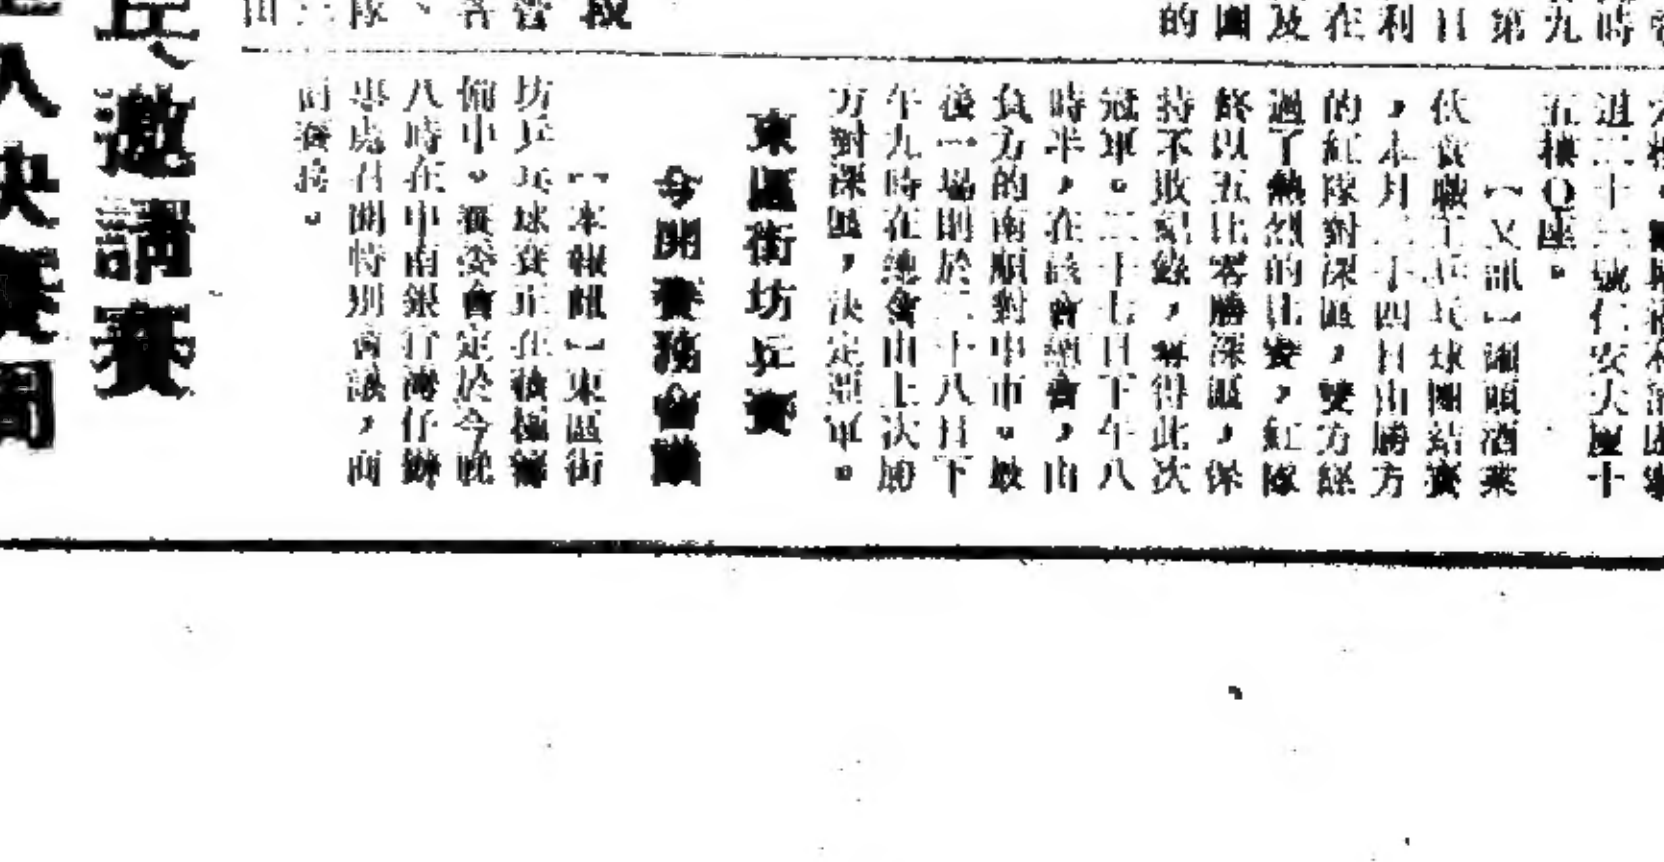 時
九
第
日
利
在
及
圍
的
道二十二號仁安大廈十
五樓O座。
（又訊）罐頭酒菜
伙食職工乒乓球團結賽
，本月二十四日由勝方
的紅隊對深區，雙方經
過了熱烈的比賽，紅隊
終以五比零勝深區，保
持不敗紀錄，奪得此次
冠軍。二十七日下午八
時半，在該會總會，由
負方的南順對中市。最
後一場則於二十八日下
午九時在總會由上次勝
方對深區，決定亞軍。
東區街坊乒賽
今開賽務會議
【本報訊】東區街
坊乒乓球賽正在積極籌
備中。賽委會定於今晚
八時在中南銀行灣仔辦
事處召開特別會議，商
討賽務。
隊
邀請賽
人決賽周